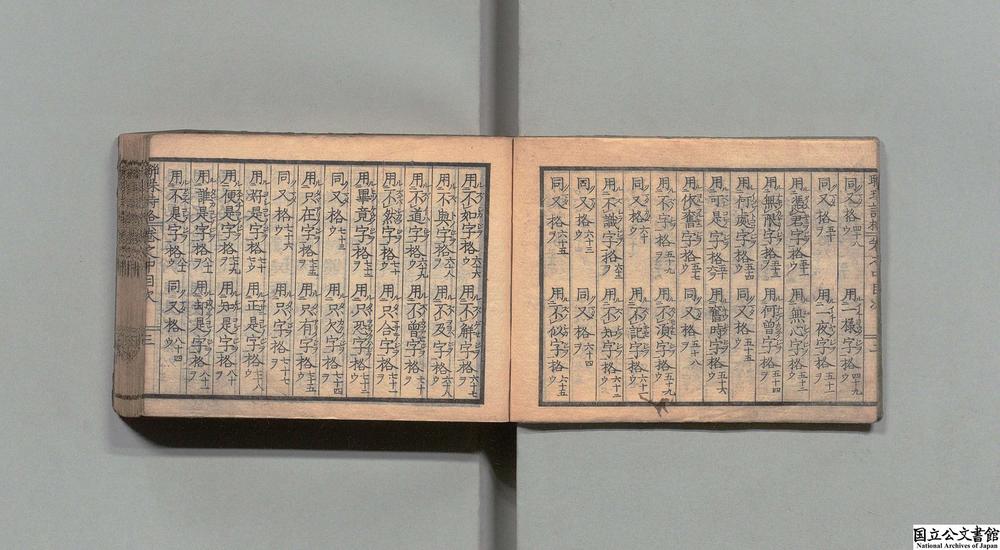 聯珠詩格卷之中目次 二
同又格 四十八 用一樣字格 四十九
同又格 五十 用一夜字格 五十一
用憑君字格 用無心字格 五十二
用無限字格 五十三 用何曾字格 五十四
用何處字格 五十四 同又格 五十五
用可是字格 用舊時字格 五十六
用依舊字格 五十七 同又格 五十八
用不字格 五十九 用不須字格 五十九
同又格 用不記字格
用不識字格 用不知字格
同又格 六十三 同又格 六十四
同又格 六十五 用不似字格 六十五
用不如字格 六十六 用不解字格 六十七
用不與字格 六十八 用不及字格 六十八
用不道字格 六十九 用不曾字格
用不然字格 用只合字格
用畢竟字格 用只恐字格
同又格 七十三 用只欠字格 七十四
用只在字格 七十五 用只有字格 七十五
同又格 七十六 用只字格 七十七
用好是字格 用正是字格 七十八
用便是字格 七十九 用知是字格
用誰是字格 用却是字格
用不是字格 同又格 八十四
聯珠詩格卷之中目次 三
国立公文書館
National Archives of Japan